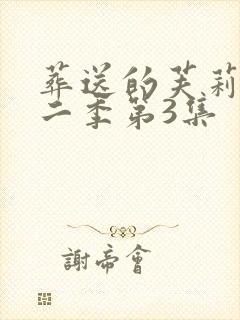 葬送的芙莉
二季第3集
謝帝會